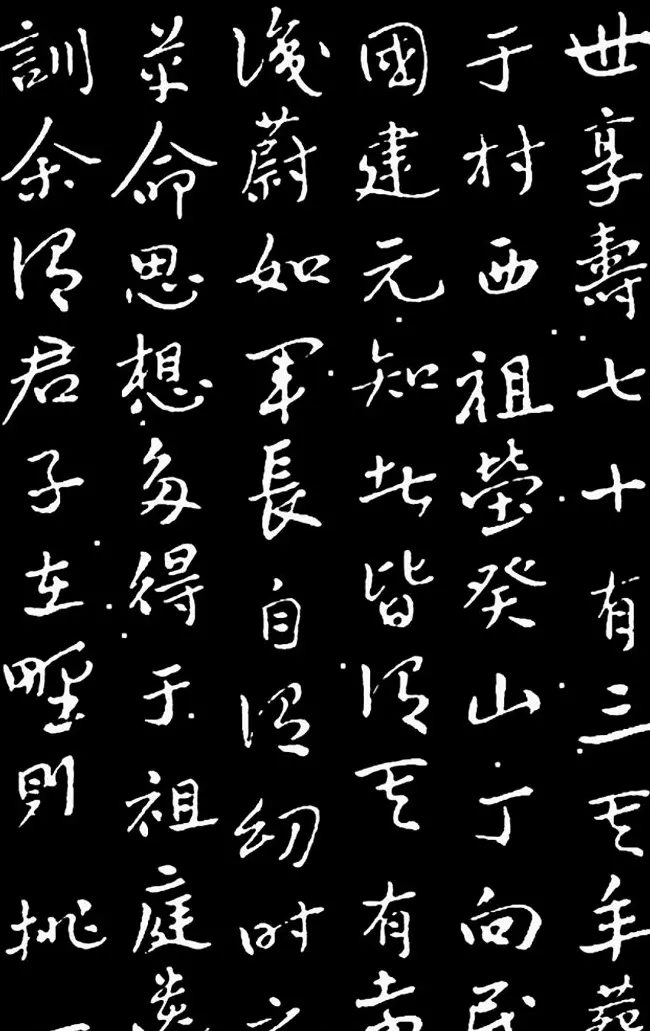 世享壽七十有三其年葬
于村西祖塋癸山丁向民
國建元知者皆謂其有
識蔚如軍長自謂幼時
革命思想多得于祖庭
訓余謂君子在野則挑